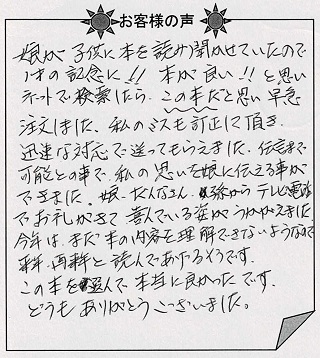 お客様の声
娘が子供に本を読み聞かせていたので
1才の記念に!! 本が良い!!と思い
ネットで検索したら、この本だと思い早急
注文しました、私のミスも訂正して頂き
迅速な対応で送ってもらえました、伝言まで
可能との事で、私の思いを娘に伝える事が
できました。娘、だんなさん、孫からテレビ電話
でお礼がきて喜んでいる姿がうかがえました
今年は、まだ本の内容を理解できないようなので
来年、再来年と読んであげるそうです。
この本を選んで本当に良かったです。
どうもありがとうございました。